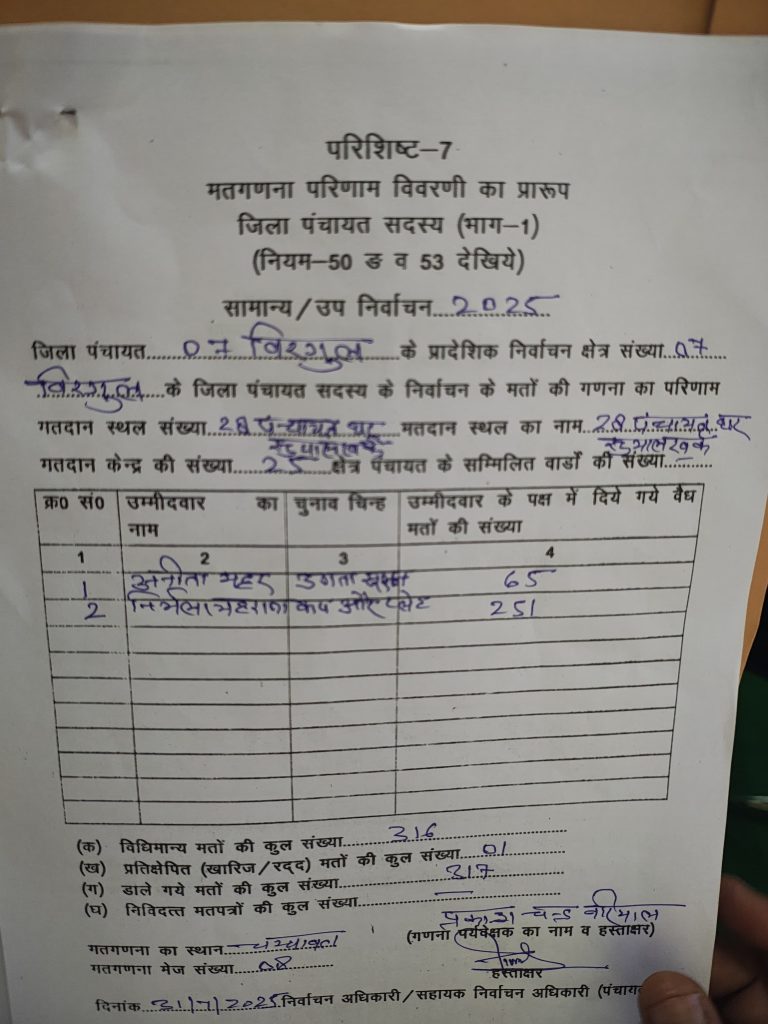 परिशिष्ट–7
मतगणना परिणाम विवरणी का प्रारूप
जिला पंचायत सदस्य (भाग–1)
(नियम–50 ङ व 53 देखिये)
सामान्य/उप निर्वाचन....2025
जिला पंचायत......07 विरगुल......के प्रादेशिक निर्वाचन क्षेत्र संख्या..07....
विरगुल....के जिला पंचायत सदस्य के निर्वाचन के मतों की गणना का परिणाम
गतदान स्थल संख्या..28 पंचायत घर मतदान स्थल का नाम..28 पंचायत घर
गतदान केन्द्र की संख्या.....25....क्षेत्र पंचायत के सम्मिलित वार्डो की संख्या...–......
क्र0 सं0 उम्मीदवार का नाम चुनाव चिन्ह उम्मीदवार के पक्ष में दिये गये वैध मतों की संख्या
1 2 3 4
1 अनीता उगता 65
2 निर्मला कप और प्लेट 251
(क) विधिमान्य मतों की कुल संख्या......316
(ख) प्रतिक्षेपित (खारिज/रद्द) मतों की कुल संख्या...01
(ग) डाले गये मतों की कुल संख्या......317
(घ) निविदत्त मतपत्रों की कुल संख्या......–
प्रकाश चन्द
(गणना पर्यवेक्षक का नाम व हस्ताक्षर)
गतगणना का स्थान
गतगणना मेज संख्या...08
हस्ताक्षर
दिनांक..31/7/2025 निर्वाचन अधिकारी/सहायक निर्वाचन अधिकारी (पंचायत